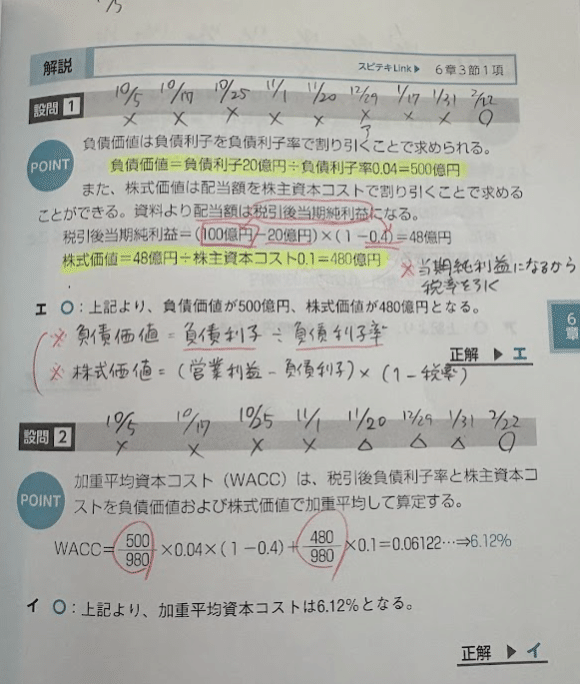 1/5
解説
スピテキLink▶ 6章3節1項
10/5 10/17 10/25 11/1 11/20 12/29 1/17 1/31 2/22
設問 1 × × × × × × × × ○
ア
POINT
負債価値は負債利子を負債利子率で割り引くことで求められる。
負債価値＝負債利子20億円÷負債利子率0.04＝500億円
また、株式価値は配当額を株主資本コストで割り引くことで求める
ことができる。資料より配当額は税引後当期純利益になる。
税引後当期純利益＝(100億円−20億円)×(1−0.4)＝48億円
株式価値＝48億円÷株主資本コスト0.1＝480億円
※当期純利益になるから
税率を引く
エ ○：上記より、負債価値が500億円、株式価値が480億円となる。
6章
※ 負債価値 = 負債利子 ÷ 負債利子率
正解 ▶ エ
※ 株式価値 = (営業利益 - 負債利子) × (1 - 税率)
10/5 10/17 10/25 11/1 11/20 12/29 1/31 2/22
設問 2 × × × × △ △ △ ○
POINT
加重平均資本コスト（WACC）は、税引後負債利子率と株主資本コ
ストを負債価値および株式価値で加重平均して算定する。
WACC＝500/980×0.04×(1−0.4)＋480/980×0.1＝0.06122…⇒6.12%
イ ○：上記より、加重平均資本コストは6.12%となる。
正解 ▶ イ